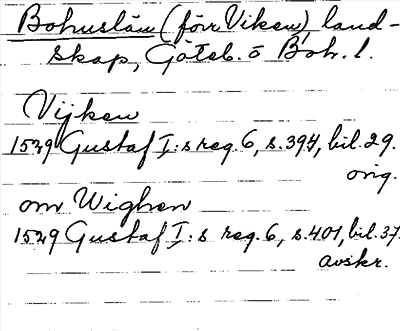 Bohuslän (förr Viken), land-
skap, Göteb. o Boh. l.
Vijken
1529 Gustaf I:s reg. 6, s. 394, bil. 29.
orig.
om Wighen
1529 Gustaf I:s reg. 6, s. 401, bil. 37.
avskr.